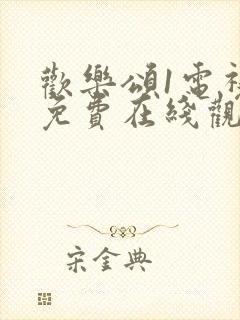 歡樂頌1電視
免費在綫觀
宋金典